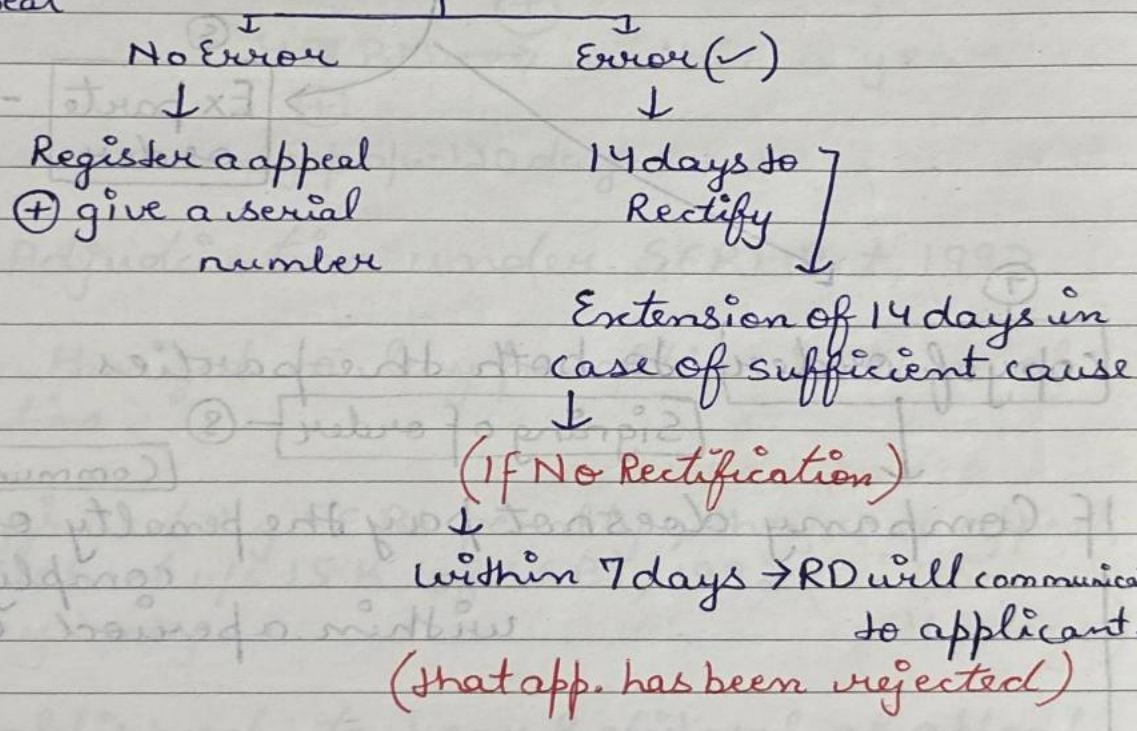 No Error Error (✓)
↓ ↓
Register a appeal 14 days to
⊕ give a serial Rectify
number
Extension of 14 days in
case of sufficient cause
↓
(If No Rectification)
↓
within 7 days → RD will communica
to applicant
(that app. has been rejected)